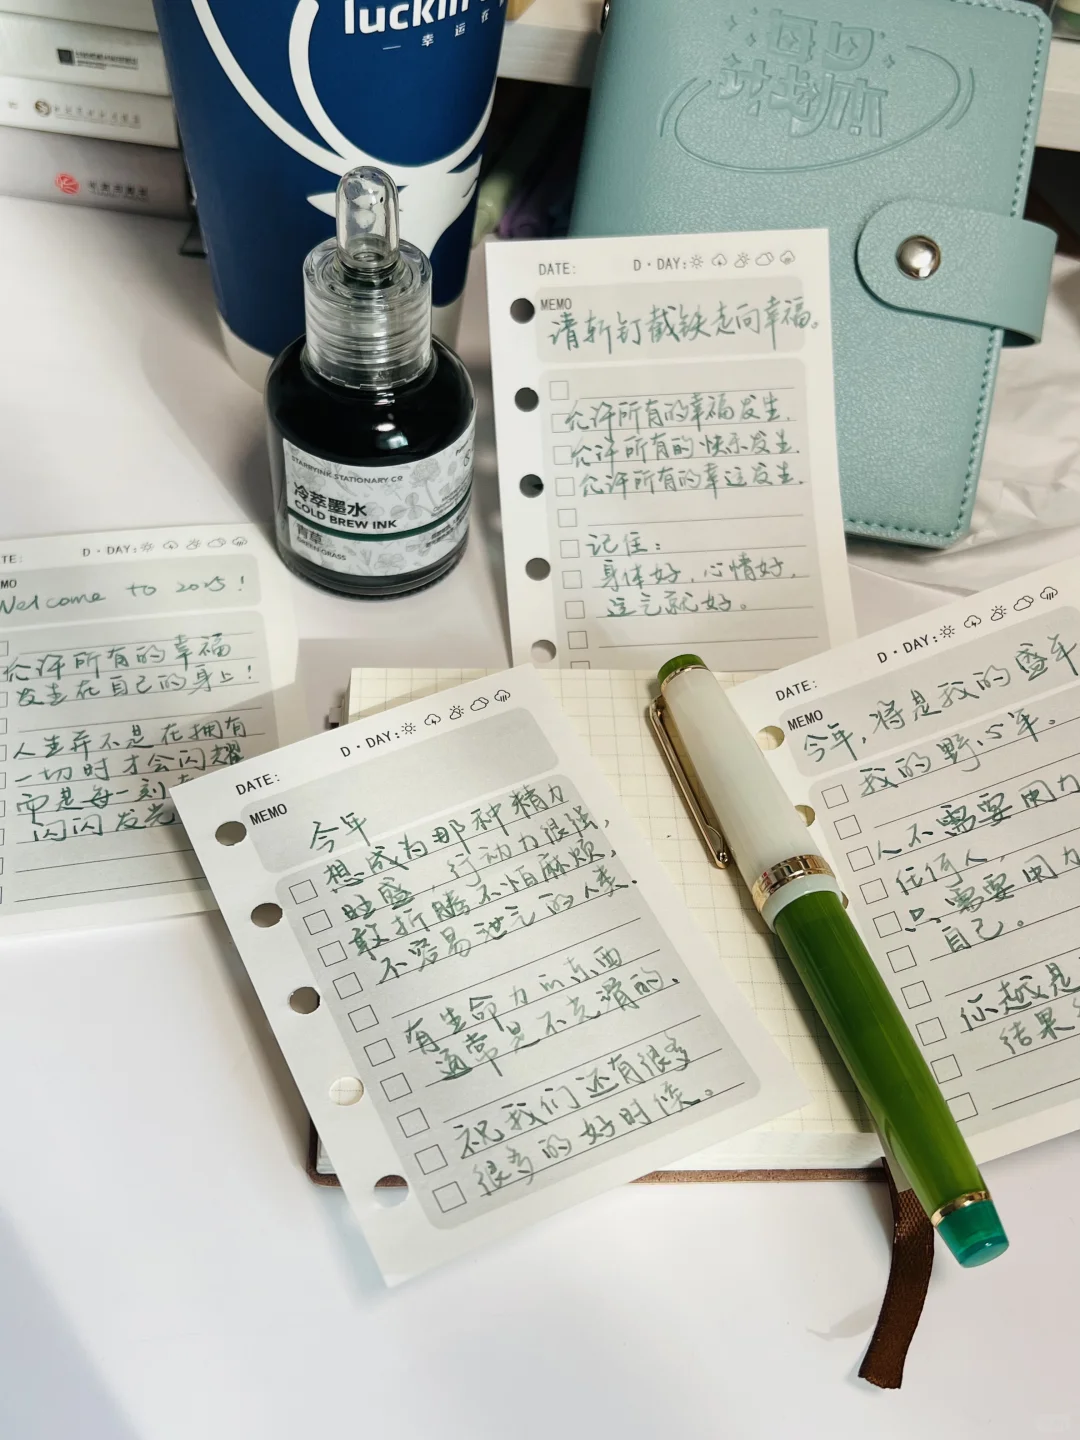 luckin
幸运在
每日
计划本
STARRYINK STATIONARY CO
冷萃墨水
COLD BREW INK
青草
GREEN GRASS
DATE:
D·DAY:
MEMO
请斩钉截铁走向幸福。
允许所有的幸福发生.
允许所有的快乐发生.
允许所有的幸运发生.
记住:
身体好,心情好,
运气就好。
TE:
D·DAY:
MO
Welcome to 2025!
允许所有的幸福
发生在自己的身上!
人生并不是在拥有
一切时才会闪耀
而是每一刻
闪闪发光
DATE:
D·DAY:
MEMO
今年
想成为那种精力
旺盛,行动力很强,
敢折腾不怕麻烦,
不容易泄气的人类.
有生命力的东西
通常是不光滑的.
祝我们还有很多
很多的好时候。
DATE:
D·DAY:
MEMO
今年,将是我的盛年
我的野心年。
人不需要用力
任何人,
只需要用力
自己。
你越是
结果